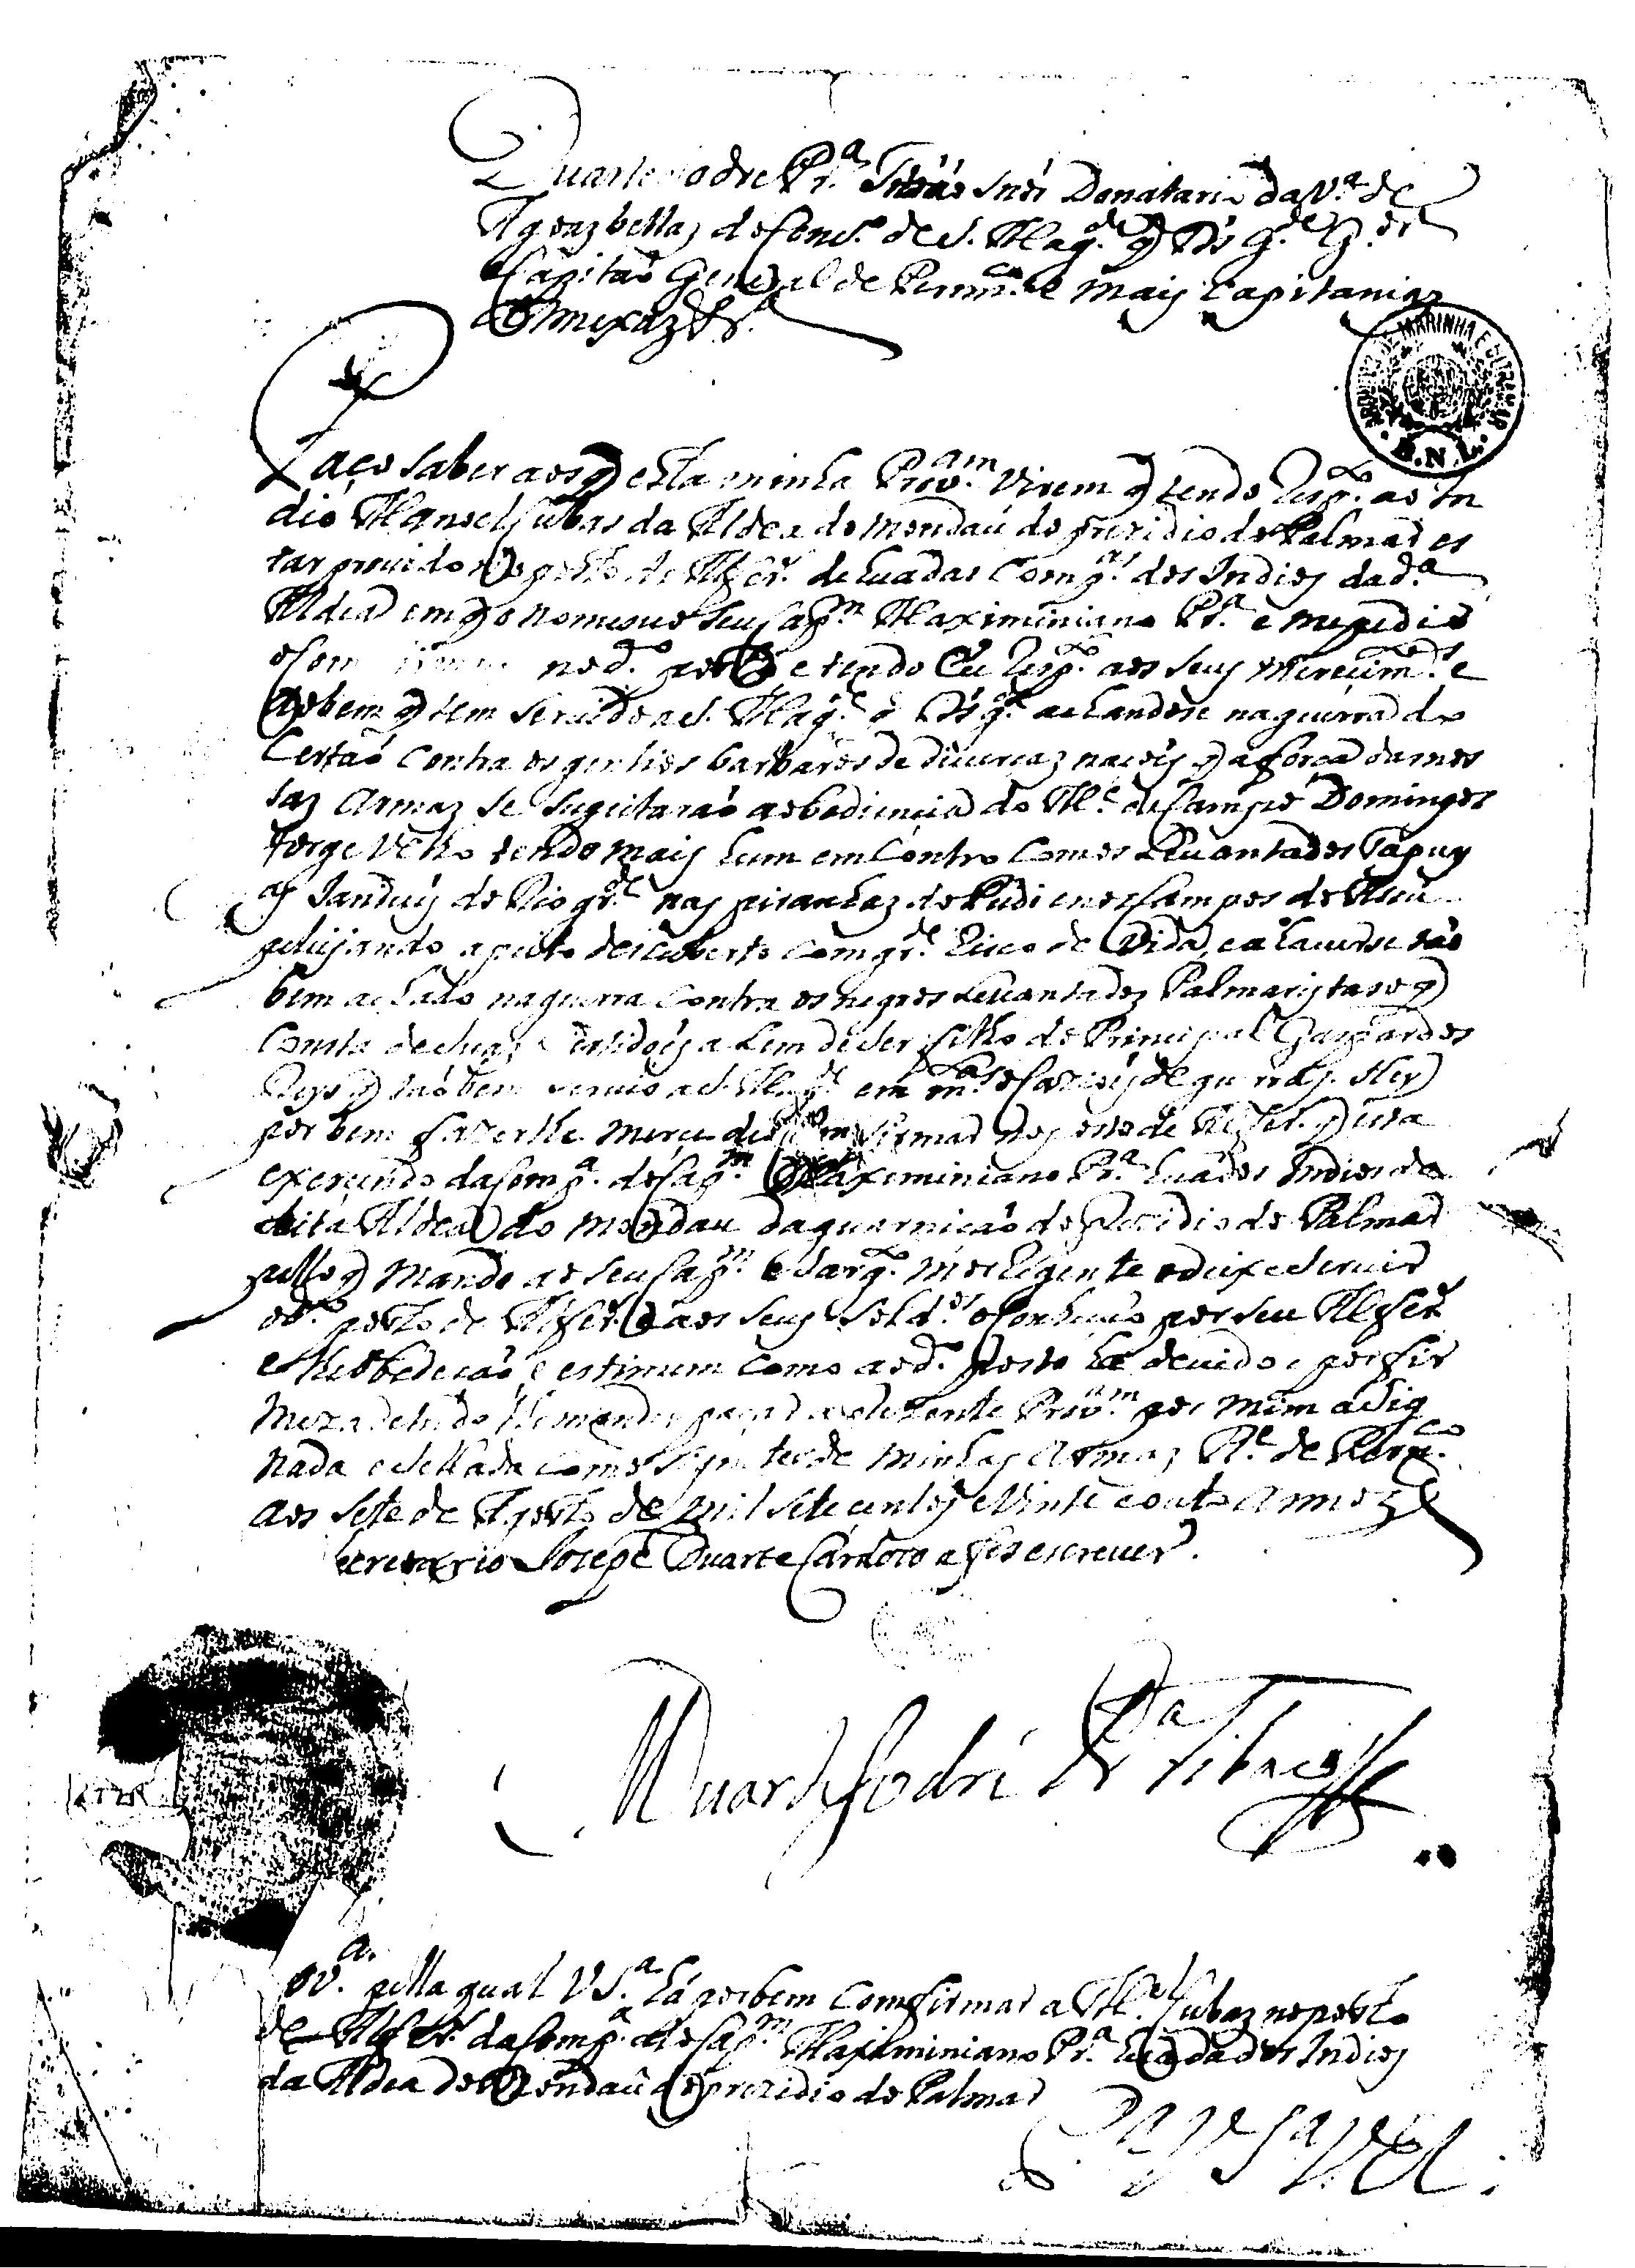 Duarte Sodre Pr.ª Tibáo Snór Donatario da V.ª de
Agoaz bellaz do Cons.º de S. Mag.de q Ds g.de G.or
e Capitaó General de Pernn.co e mais Capitanias
Annexaz &.ª
Faço saber aos q esta minha Prov.am virem q tendo resp.to ao In
dio Manoel Cubas da Aldea do Mondaú do prezidio do Palmar es
tar provido no posto de Alfer.s de hua das Comp.as dos Indios da d.ª
Aldea em q o nomeou o seu Cap.m Maximiniano Pr.ª e me pedio
o Com no d.º posto e tendo Eu resp.to aos seus merecim.tos e
ao bem q tem servido a S. Mag.de q Ds g.de achandose na guerra do
Certaó contra os gentios barbaros de divercaz nacóis q a forca da nos
saz Armaz se sugeitaraó a obediencia do M.e de Campo Domingos
Jorge Velho tendo mais hum em Contro Com os Levantados Tapuy
as Janduis do Rio gr.de nas piranhaz do Pudi e nos Campos do Asú
pelejando a peito descuberto com gr.de risco de Vida, e a haverse taó
bem achado na guerra contra os negros Levantados Palmaristas o q
Consta de suas Certidóis alem de ser filho do Principal Gaspar dos
Reys q taóbem servio a S. Mag.de em m.tas ocazióis de guerra. Hey
por bem fazerlhe merce de o Comfirmar no posto de Alfer.s q esta
exercendo da Comp.ª do Cap.m Maximiniano Pr.ª hua dos Indios da
dita Aldea do Mondau da guarnicaó do Prezidio do Palmar
pello q Mando ao seu Cap.m e Sarg.to mor Regente o deixe servir
o d.º posto de Alfer.s e aos seus Sold.os o Conheçaó por seu Alfer.s
e lhe obedecaó e estimem como ao d.º posto he devido e por fir
meza de tudo lhe mandei pasar a prezente Prov.am por mim asig
nada e sellada com o signete de minhas Armaz R.e de Pern.co
aos Sete de Agosto de mil Setecentos e Vinte e outo annos
Secretario Joseph Duarte Cardozo a fes escrever.
Duarte Sodré Pr.ª Tibaó
pella qual V S.ª há por bem Comfirmar a M.el Cubaz no posto
de Alfer.s da Comp.ª do Cap.m Maximiniano Pr.ª hua da dos Indios
da Aldea do Mondaú do prezidio do Palmar